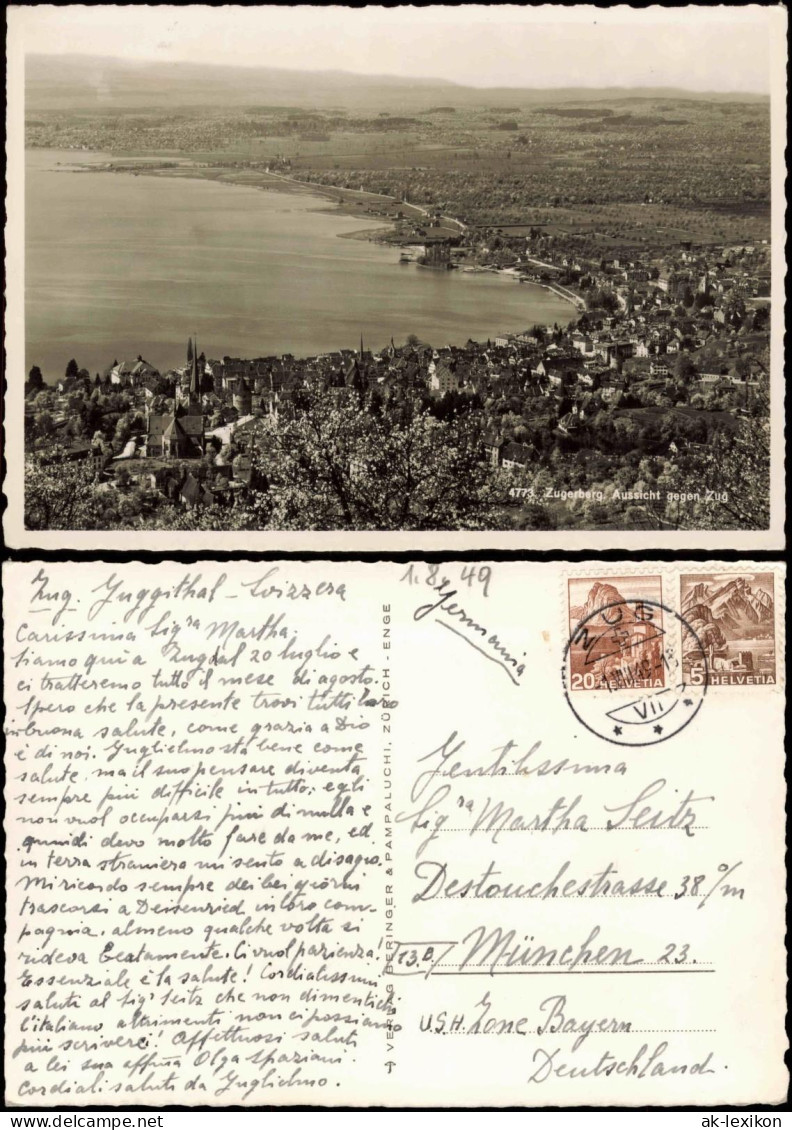 4773 Zugerberg. Aussicht gegen Zug
Zug. Guggithal - Svizzera
Carissima Sigra Martha,
siamo qui a Zug dal 20 luglio e
ci tratteremo tutto il mese di agosto.
Spero che la presente trovi tutti loro
in buona salute, come grazia a Dio
è di noi. Guglielmo sta bene come
salute, ma il suo pensare diventa
sempre più difficile in tutto; egli
non vuol occuparsi più di nulla e
quindi devo molto fare da me, ed
in terra straniera mi sento a disagio.
Mi ricordo sempre dei bei giorni
trascorsi a Deisenried in loro com-
pagnia. almeno qualche volta si
rideva beatamente. Ci vuol pazienza!
Essenziale è la salute! Cordialissimi
saluti al Sigr Seitz che non dimentichi
l'italiano altrimenti non ci possiamo
più scrivere! Affettuosi saluti
a lei sua affma Olga Spaziani.
Cordiali saluti da Guglielmo.
VERLAG BERINGER & PAMPALUCHI, ZÜRICH - ENGE
1.8.49
Germania
20 HELVETIA
5 HELVETIA
ZUG
VII
Gentilissima
Sigra Martha Seitz
Destouchestrasse 38 o/m
13.B München 23.
U.S.H. Zone Bayern
Deutschland.
ak-lexikon